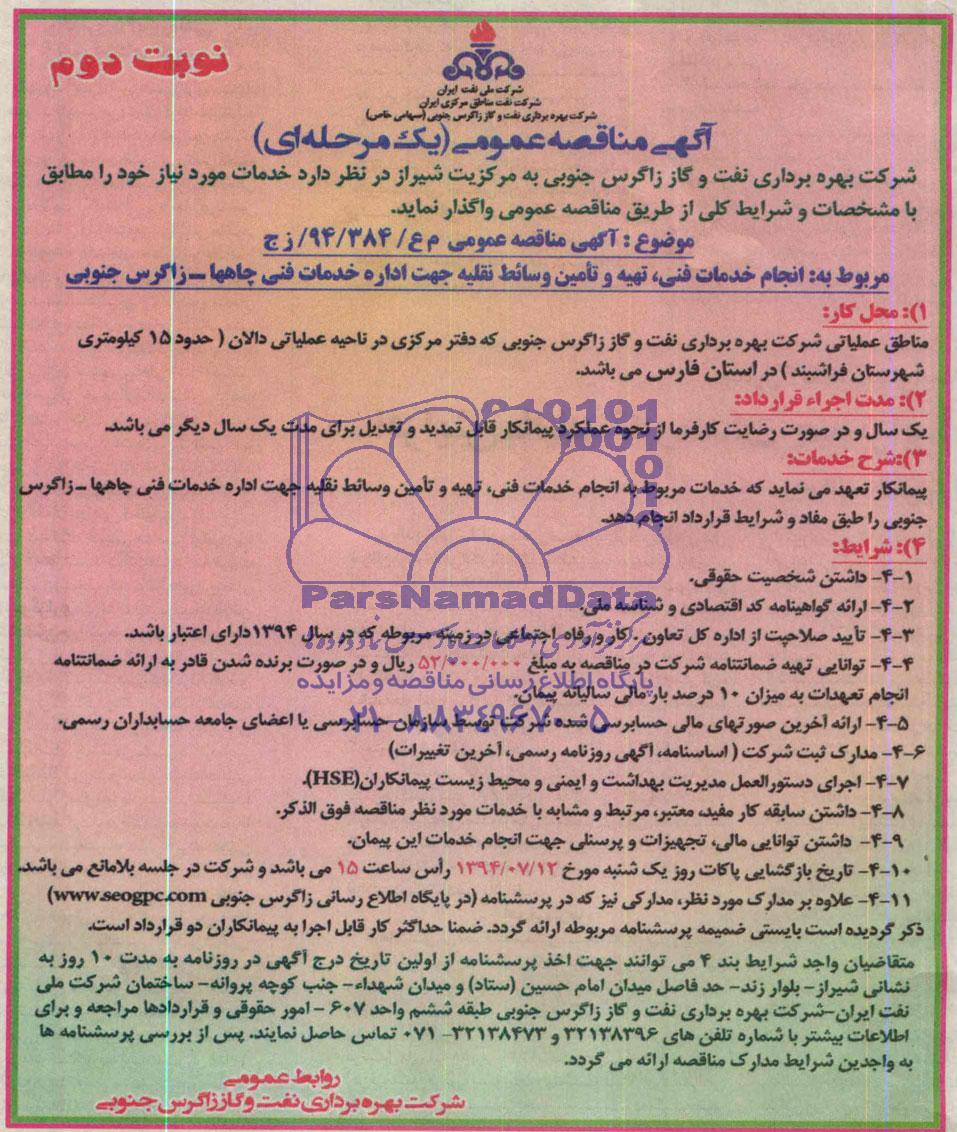 نوبت دوم
شرکت ملی نفت ایران
شرکت نفت مناطق مرکزی ایران
شرکت بهره برداری نفت و گاز زاگرس جنوبی (سهامی خاص)
آگهی مناقصه عمومی (یک مرحله‌ای)
شرکت بهره برداری نفت و گاز زاگرس جنوبی به مرکزیت شیراز در نظر دارد خدمات مورد نیاز خود را مطابق
با مشخصات و شرایط کلی از طریق مناقصه عمومی واگذار نماید.
موضوع : آگهی مناقصه عمومی م ع/ ۹۴/۳۸۴/ ز ج
مربوط به: انجام خدمات فنی، تهیه و تأمین وسائط نقلیه جهت اداره خدمات فنی چاهها ــ زاگرس جنوبی
۱): محل کار:
مناطق عملیاتی شرکت بهره برداری نفت و گاز زاگرس جنوبی که دفتر مرکزی در ناحیه عملیاتی دالان ( حدود ۱۵ کیلومتری
شهرستان فراشبند ) در استان فارس می باشد.
۲): مدت اجراء قرارداد:
یک سال و در صورت رضایت کارفرما از نحوه عملکرد پیمانکار قابل تمدید و تعدیل برای مدت یک سال دیگر می باشد.
۳):شرح خدمات:
پیمانکار تعهد می نماید که خدمات مربوط به انجام خدمات فنی، تهیه و تأمین وسائط نقلیه جهت اداره خدمات فنی چاهها ــ زاگرس
جنوبی را طبق مفاد و شرایط قرارداد انجام دهد.
۴): شرایط:
۴-۱- داشتن شخصیت حقوقی.
۴-۲- ارائه گواهینامه کد اقتصادی و شناسه ملی.
ParsNamadData
۴-۳- تأیید صلاحیت از اداره کل تعاون . کار و رفاه اجتماعی در زمینه مربوطه که در سال ۱۳۹۴ دارای اعتبار باشد.
۴-۴- توانایی تهیه ضمانتنامه شرکت در مناقصه به مبلغ ۵۲/۰۰۰/۰۰۰ ریال و در صورت برنده شدن قادر به ارائه ضمانتنامه
پایگاه اطلاع رسانی مناقصه و مزایده
انجام تعهدات به میزان ۱۰ درصد بار مالی سالیانه پیمان.
۰۲۱-۸۸۳۴۹۶۷۰-۵
۴-۵- ارائه آخرین صورتهای مالی حسابرسی شده شرکت توسط سازمان حسابرسی یا اعضای جامعه حسابداران رسمی.
۴-۶- مدارک ثبت شرکت ( اساسنامه، آگهی روزنامه رسمی، آخرین تغییرات)
۴-۷- اجرای دستورالعمل مدیریت بهداشت و ایمنی و محیط زیست پیمانکاران(HSE).
۴-۸- داشتن سابقه کار مفید، معتبر، مرتبط و مشابه با خدمات مورد نظر مناقصه فوق الذکر.
۴-۹- داشتن توانایی مالی، تجهیزات و پرسنلی جهت انجام خدمات این پیمان.
۴-۱۰- تاریخ بازگشایی پاکات روز یک شنبه مورخ ۱۳۹۴/۰۷/۱۲ رأس ساعت ۱۵ می باشد و شرکت در جلسه بلامانع می باشد.
۴-۱۱- علاوه بر مدارک مورد نظر، مدارکی نیز که در پرسشنامه (در پایگاه اطلاع رسانی زاگرس جنوبی www.seogpc.com)
ذکر گردیده است بایستی ضمیمه پرسشنامه مربوطه ارائه گردد. ضمنا حداکثر کار قابل اجرا به پیمانکاران دو قرارداد است.
متقاضیان واجد شرایط بند ۴ می توانند جهت اخذ پرسشنامه از اولین تاریخ درج آگهی در روزنامه به مدت ۱۰ روز به
نشانی شیراز- بلوار زند- حد فاصل میدان امام حسین (ستاد) و میدان شهداء- جنب کوچه پروانه- ساختمان شرکت ملی
نفت ایران-شرکت بهره برداری نفت و گاز زاگرس جنوبی طبقه ششم واحد ۶۰۷ - امور حقوقی و قراردادها مراجعه و برای
اطلاعات بیشتر با شماره تلفن های ۳۲۱۳۸۳۹۶ و ۳۲۱۳۸۴۷۳- ۰۷۱ تماس حاصل نمایند. پس از بررسی پرسشنامه ها
به واجدین شرایط مدارک مناقصه ارائه می گردد.
روابط عمومی
شرکت بهره برداری نفت و گاز زاگرس جنوبی